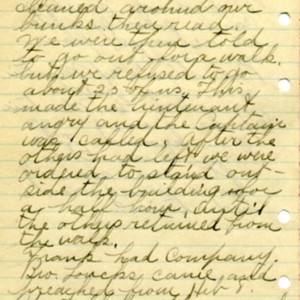 cleaned around our
bunks then read.
We were then told
to go out for a walk.
but we refused to go
about 25 of us. This
made the lieutenant
angry and the Captain
was called, after the
others had left we were
ordered to stand out-
side the building for
a half hour, until
the others returned from
the walk.
Frank had Company.
Bro. Loucks came and
preached from Heb